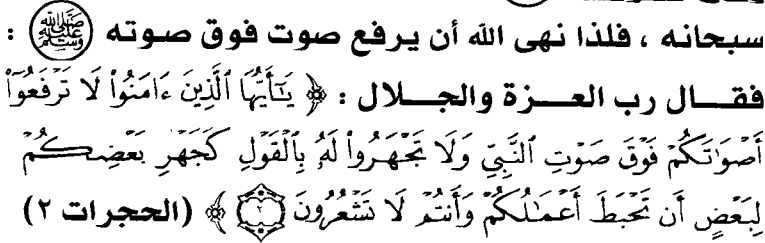 سبحانه ، فلذا نهى الله أن يرفع صوت فوق صوته ﷺ :
فقال رب العزة والجلال : ﴿ يَـٰٓأَيُّهَا ٱلَّذِينَ ءَامَنُوا۟ لَا تَرْفَعُوٓا۟
أَصْوَٰتَكُمْ فَوْقَ صَوْتِ ٱلنَّبِىِّ وَلَا تَجْهَرُوا۟ لَهُۥ بِٱلْقَوْلِ كَجَهْرِ بَعْضِكُمْ
لِبَعْضٍ أَن تَحْبَطَ أَعْمَـٰلُكُمْ وَأَنتُمْ لَا تَشْعُرُونَ ٢ ﴾ (الحجرات ٢)